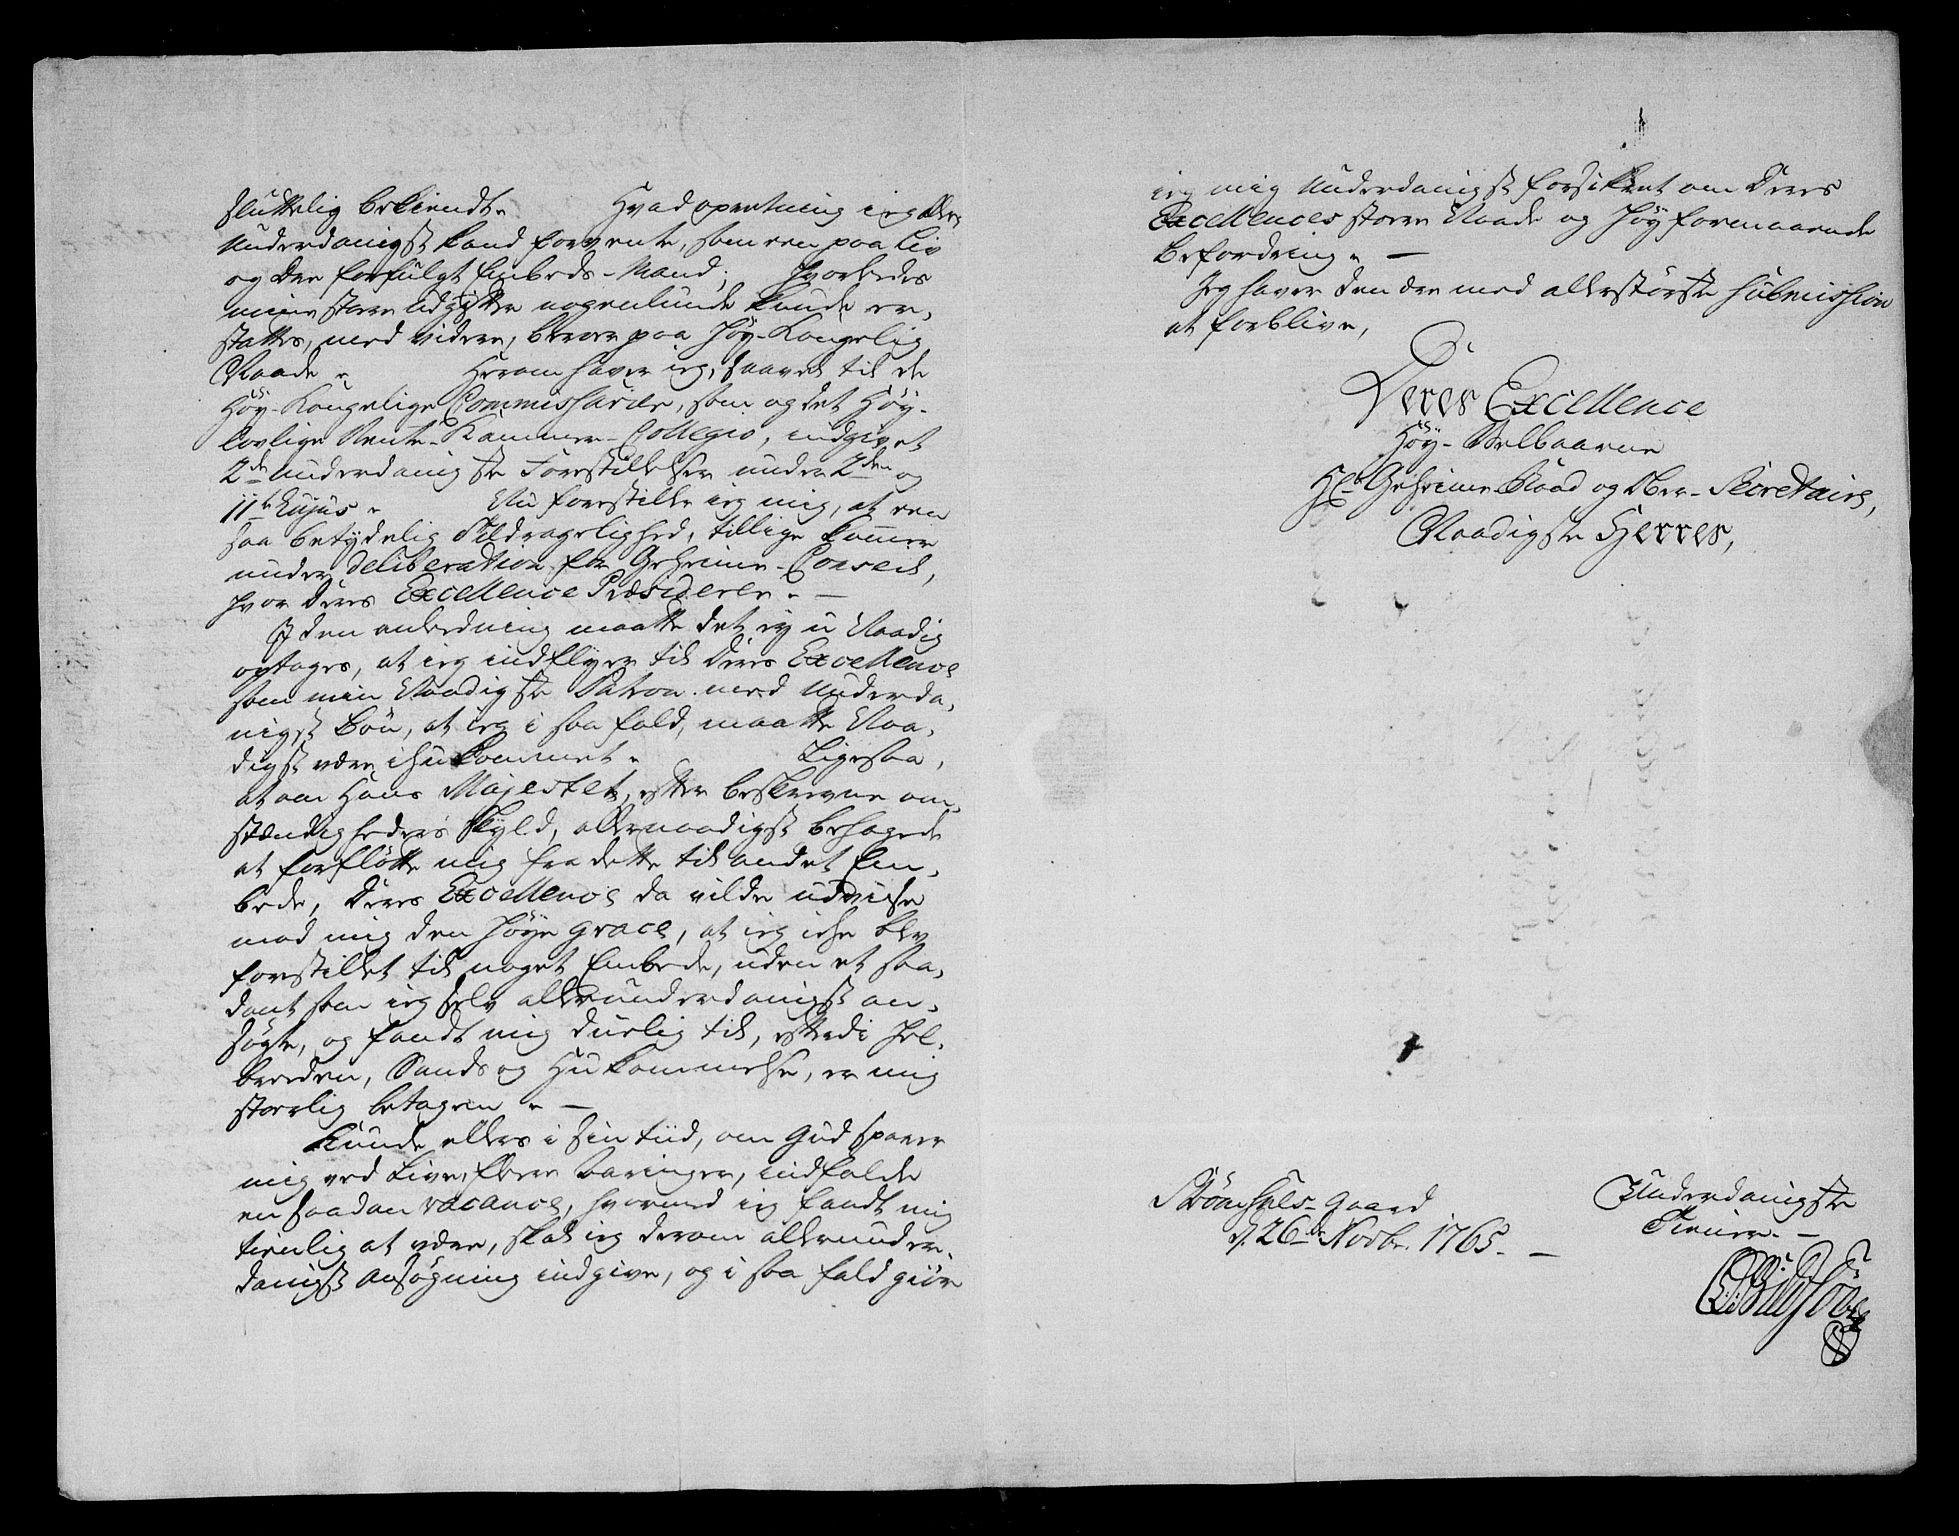 sluttelig bekiendt. Hvad opretning ieg aller
underdanigst kand forvente, som een paa Liv
og Ære forfulgt Embeds-Mand; hvorledes
mine store Udgifter nogenlunde kunde er-
stattes, med videre, beroer paa Høy-Kongelig
Naade. Herom haver ieg, saavel til de
Høy-Kongelige Commissarier, som og det Høy-
lovlige Rente-Kammer-Collegio, indgivet
2de underdanigste Forestillelser under 2den og
11te hujus. Nu forestiller ieg mig, at een
saa betydelig tildragelighed, tillige kommer
under deliberation for Geheime-Conseil,
hvor Deres Excellence Præsiderer. —
I den anledning maatte det ey u-Naadig
optages, at ieg indflyer til Deres Excellence
som min Naadigste Patron med underda-
nigst Bøn, at ieg i saa fald, maatte Naa-
digst være ihukommet. Ligesaa,
at om Hans Majestet, efter beskrevne om-
stændigheders skyld, allernaadigst behagede
at forflötte mig fra dette til andet Em-
bede, Deres Excellence da vilde udviise
mod mig den høye grace, at ieg icke blev
forestillet til noget Embede, uden et saa-
dant som ieg selv allerunderdanigst an-
søgte, og fandt mig duelig til, efterdi Hel-
breeden, Sands og Hukommelse, er mig
storlig betagen. —
Kunde ellers i sin tiid, om Gud sparer
mig ved Live, flere Aaringer, indfalde
en saadan vacance, hvormed ieg fandt mig
tienlig at være, skal ieg derom allerunder-
danigst Ansøgning indgive, og i saa fald giør
ieg mig underdanigst forsikret om Deres
Excellences store Naade og Høyformaaende
Befordring. —
Jeg haver den ære med allerstørste submission
at forblive,
Deres Excellence
Høy-Velbaarne
Hr Geheime Raad og Ober-Secretaire,
Naadigste Herres,
Strömsøes-Gaard
d. 26de Novbr. 1765. —
Underdanigste
Tiener. —